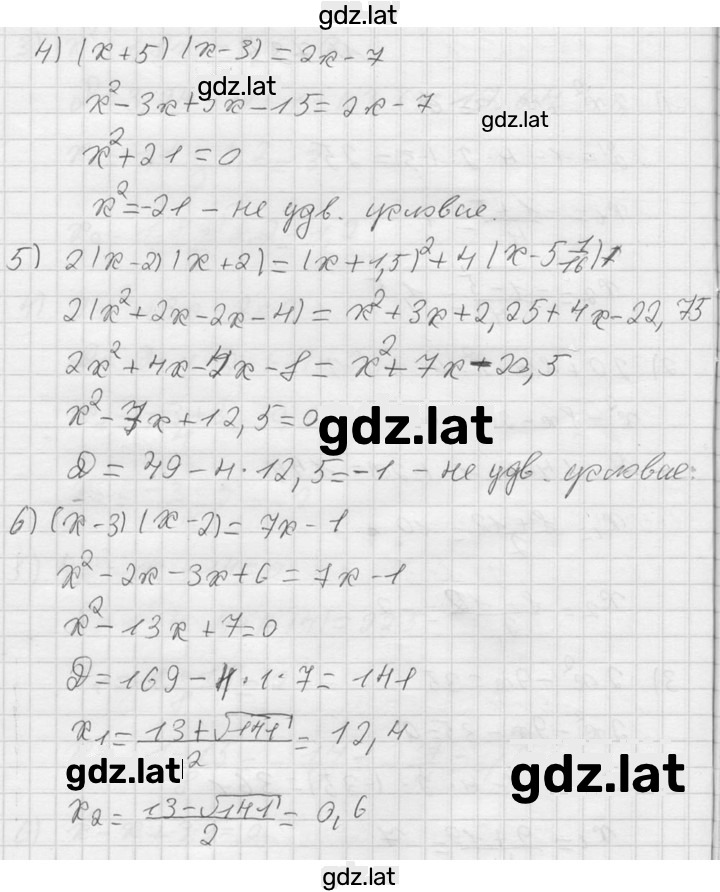 gdz.lat
4) (x+5)(x-3)=2x-7
gdz.lat
x²-3x+5x-15=2x-7
gdz.lat
x²+21=0
x²=-21 - не удв. условие.
5) 2(x-2)(x+2)=(x+1,5)²+4(x-5 1/16)
2(x²+2x-2x-4)=x²+3x+2,25+4x-22,75
2x²+4x-4x-8=x²+7x-20,5
x²-7x+12,5=0
gdz.lat
D=49-4·12,5=-1 - не удв. условие.
6) (x-3)(x-2)=7x-1
x²-2x-3x+6=7x-1
x²-13x+7=0
D=169-4·1·7=141
x₁=(13+√141)/2=12,4
gdz.lat
gdz.lat
x₂=(13-√141)/2=0,6
gdz.lat